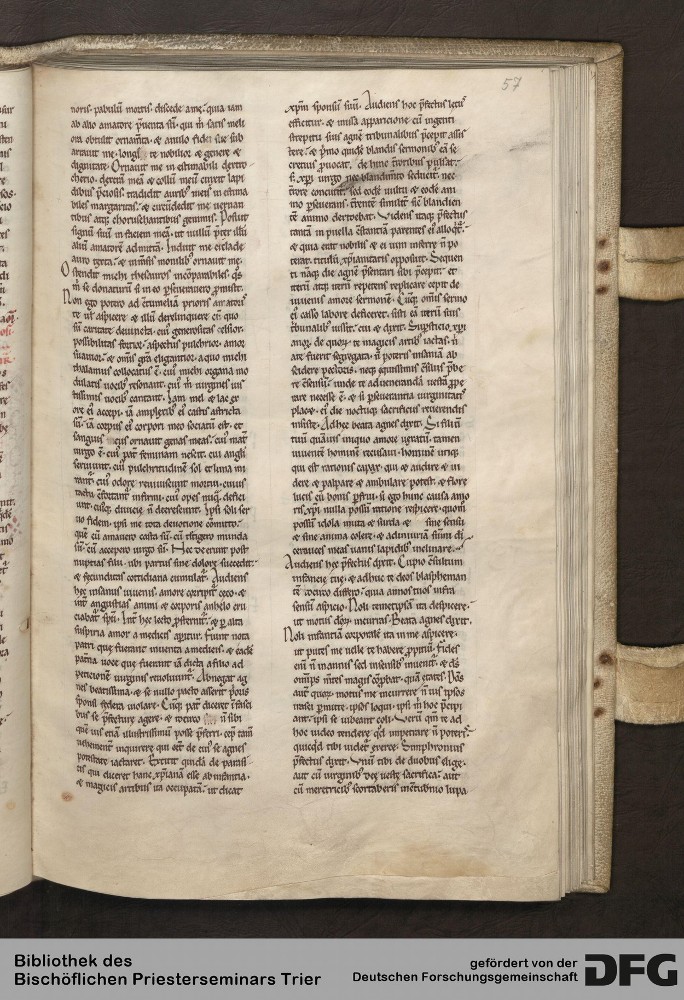 57
noris. pabulū mortis. discede a me. quia iam
ab alio amatore p̄uenta sū. qui m̄ satis meli
ora obtulit ornam̄ta. & anulo fidei sue sub
arravit me. longe te nobilior & genere &
dignitate. Ornauit me inestimabili dextro
cherio. dexterā meā & collū meū cinxit lapi
dibus p̄ciosis. tradidit auribꝫ meis inestima
biles margaritas. & circūdedit me vernan
tibus atqꝫ choruschantibus gemmis. Posuit
signū suū in faciem meā. ut nullū p̄ter illū
aliū amatorē admittā. Induit me ciclade
auro texta. & inm̄sis monilibꝫ ornauit me.
Ostendit michi thesauros incōparabiles. q̄s
m̄ se donaturū si in eo p̄seuerauero p̄misit.
Non ego potero ad cōtumeliā prioris amatoris
te uł aspicere & illū derelinquere cū quo
sū caritate deuincta. cuiꝰ generositas celsior.
possibilitas fortior. aspectus pulchrior. amor
suauior. & omīs gr̄a eligantior. a quo michi
thalamus collocatus ē. cuiꝰ michi organa mo
dulatis uocibꝫ resonant. cuiꝰ m̄ uirgines ius
tissimis uocibꝫ cantant. Iam mel & lac ex
ore eiꝰ accepi. iā amplexibꝫ eiꝰ castis astricta
sū. iā corpus eiꝰ corpori meo sociatū est. et
sanguis eius ornauit genas meas. cuiꝰ mat̄
uirgo ē. cuiꝰ pat̄ feminam nescit. cui angli
seruiunt. cuiꝰ pulchritudinē sol et luna mi
rant̄. cuiꝰ odore reuiuiscunt mortui. cuius
tactu cōfortant̄ infirmi. cuiꝰ opes nūq̄ defici
unt. cuiqꝫ diuicie n̄ decrescunt. Ipsi soli ser
uo fidem. ipsi me tota deuotione cōmitto.
quē cū amauero casta sū. cū tetigero munda
sū. cū accepero uirgo sū. Nec deerunt post
nuptias filii. ubi partus sine dolore succedit.
& fecunditas cotidiana cumulat̄. Audiens
hec insanus iuuenis. amore carpit̄ ceco. &
int̄ angustias animi & corporis anhelo cru
ciabat̄ spū. Int̄ hec lecto p̄sternit̄. & p̄ alta
suspiria amor a medicis aperit̄. Fiunt nota
patri que fuerant inuenta a medicis. & eadē
pat̄na uoce que fuerant iā dicta a filio ad
peticionē uirginis reuoluunt̄. Abnegat ag
nes beatissima. & se nullo pacto asserit p̄oris
sponsi federa uiolare. Cūqꝫ pat̄ diceret ī fasci
bus se p̄fecture agere. & iccirco n̄ sibi
quēuis etiā illustrissimū posse p̄ferri. cep̄ tam̄
uehement̄ inquirere qui eēt de cuiꝰ se agnes
potestate iactaret. Extitit quidā de parasi
tis qui diceret hanc xp̄ianā esse ab infantia.
& magicis artibus ita occupatā. ut dicat
xp̄m sponsū suū. Audiens hoc p̄fectus letus
efficitur. & missa apparicione cū ingenti
strepitu suis agnē tribunalibus p̄cepit assis
tere. & primo quidē blandis sermonibꝫ eā se
cretius p̄uocat. dehinc t̄roribus pulsat.
S; xp̄i uirgo nec blandimēto seducit̄. nec
t̄rore concutit̄. sed eodē uultu & eodē ani
mo p̄seuerans. t̄rentē similit̄ sic blandien
tē animo deridebat. Videns itaqꝫ p̄fectus
tantā in puella cōstantiā parentes eiꝰ alloqit̄.
& quia erāt nobiles & ei uim inferre n̄ po
terat. titulū xp̄ianitatis opposuit. Sequen
ti nāqꝫ die agnē p̄sentari sibi p̄cepit. et
iterū atqꝫ iterū repetens replicare cepit de
iuuenis amore sermonē. Cūqꝫ omīs sermo
eiꝰ casso labore deficeret. sisti eā iterū suis
tribunalibꝫ iussit. cui & dixit. Supsticio xp̄i
anoꝝ. de quoꝝ te magicis artibꝫ iactas. n̄
ate fuerit segregata. n̄ poteris insaniā ab
scidere pectoris. neqꝫ equissimis cōsiliis p̄be
re cōsensū. unde te ad uenerandā uestā ppe
rare necesse ē. & si p̄seuerantia uirginitatis
placet. eiꝰ die noctuqꝫ sacrificiis reuerendis
insiste. Ad hec beata agnes dixit. Si filiū
tuū quāuis iniquo amore uexatū. tamen
uiuentē hominē recusaui. hominē utiqꝫ
qui est rationis capax. qui & audire & ui
dere & palpare & ambulare potest. & flore
lucis cū bonis pfrui. si ego hunc causa amo
ris xp̄i nulla possū ratione respicere. quom̄
possū idola muta & surda & sine sensu
& sine anima colere. & ad iniuriā sūmi di
ceruices meas uanis lapidibꝫ inclinare.
Audiens hec p̄fectus dixit. Cupio cōsultum
infancie tue. & adhuc te deos blaspheman
tē iccirco differo. quia annos tuos infra
sensū aspicio. Noli temetipsā ita despicere.
ut motus deoꝝ incurras. Beata agnes dixit.
Noli infantiā corporalē ita in me aspicere.
ut putes me uelle te habere ppitiū. Fides
enī n̄ in annis sed in sensibꝫ inuenit̄. & ds̄
omp̄s mētes magis cōp̄bat quā etates. Deos
aut̄ quoꝝ motus me incurrere n̄ uis ipsos
irasci p̄mitte. ipsi loqui. ipsi m̄ hoc p̄cipi
ant. ipsi se iubeant coli. Verū qm̄ te ad
hoc uideo tendere qd̄ impetrare n̄ poteris.
quicqd̄ tibi uidet̄ exerce. Simphronius
p̄fectus dixit. Vnū tibi de duobus elige.
aut cū uirginibꝫ dee ueste sacrifica. aut
cū meretricibꝫ scortaberis in cōtubernio lupa
Bibliothek des
Bischöflichen Priesterseminars Trier
gefördert von der
Deutschen Forschungsgemeinschaft
DFG